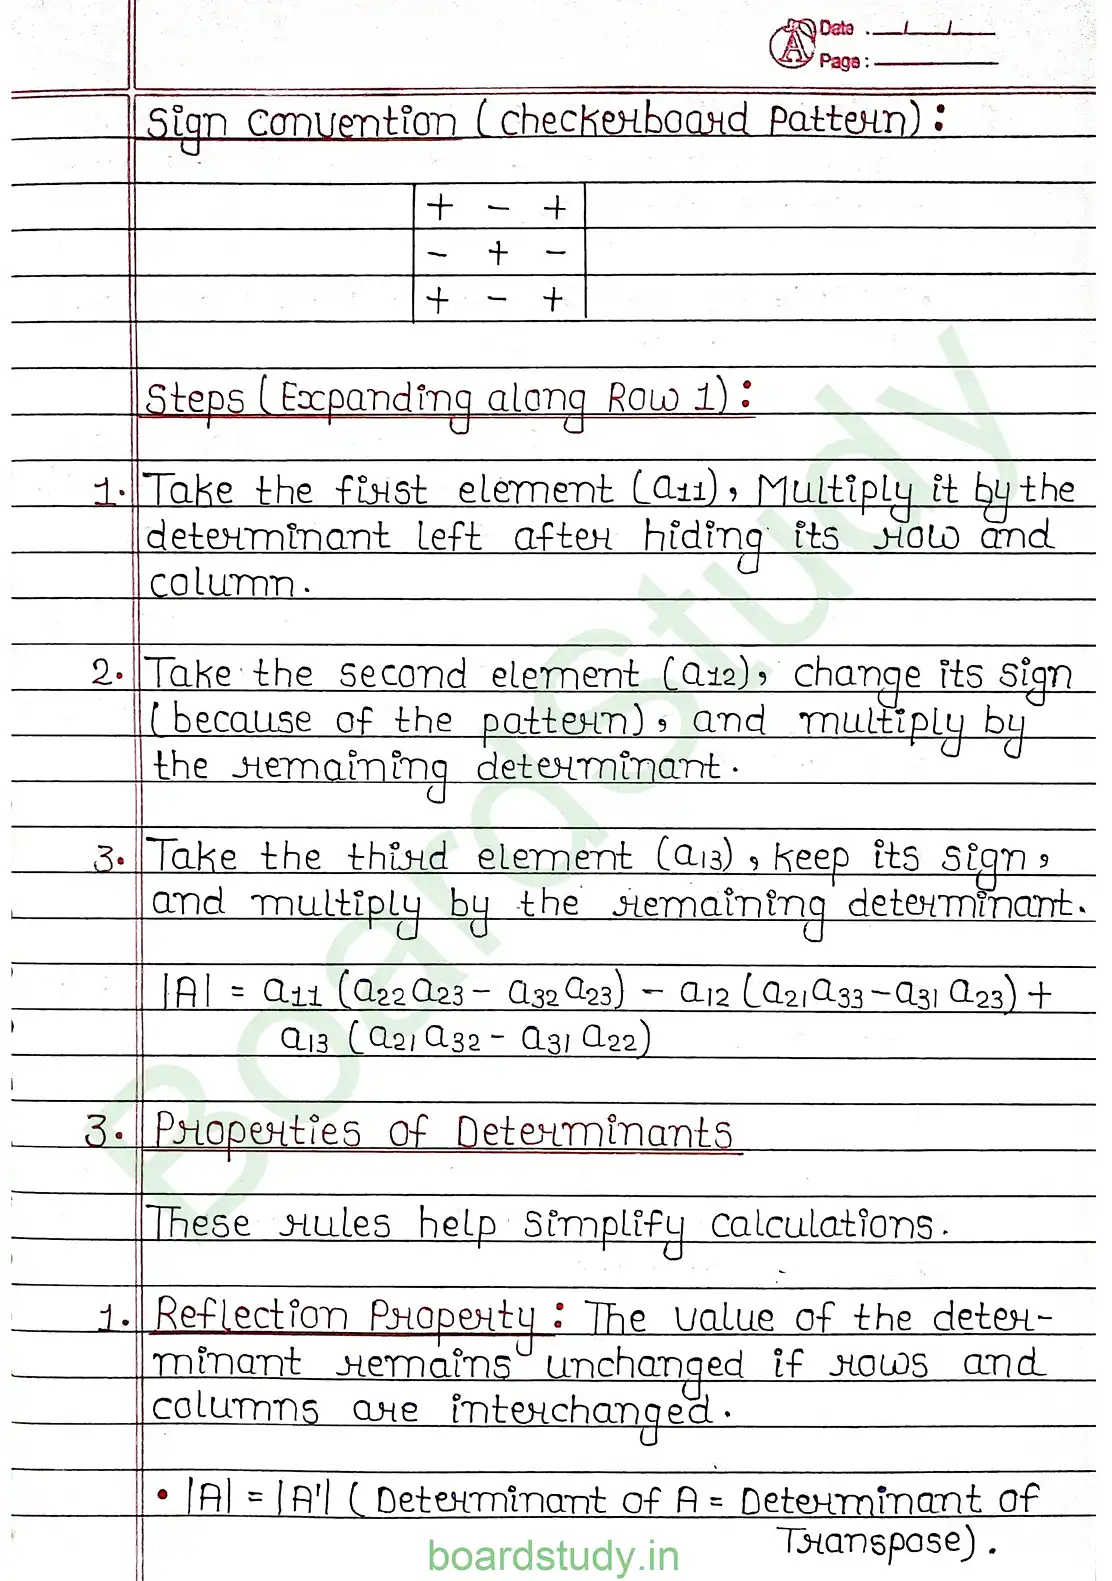 Date . __/__/__
Page :
Sign Convention (Checkerboard Pattern) :
+ - +
- + -
+ - +
Steps (Expanding along Row 1) :
1. Take the first element (a11), Multiply it by the
determinant left after hiding its row and
column.
2. Take the second element (a12), change its sign
(because of the pattern), and multiply by
the remaining determinant.
3. Take the third element (a13), keep its sign,
and multiply by the remaining determinant.
|A| = a11 (a22 a23 - a32 a23) - a12 (a21 a33 - a31 a23) +
a13 (a21 a32 - a31 a22)
3. Properties of Determinants
These rules help simplify calculations.
1. Reflection Property : The value of the deter-
minant remains unchanged if rows and
columns are interchanged.
• |A| = |A'| (Determinant of A = Determinant of
Transpose).
BoardStudy
boardstudy.in